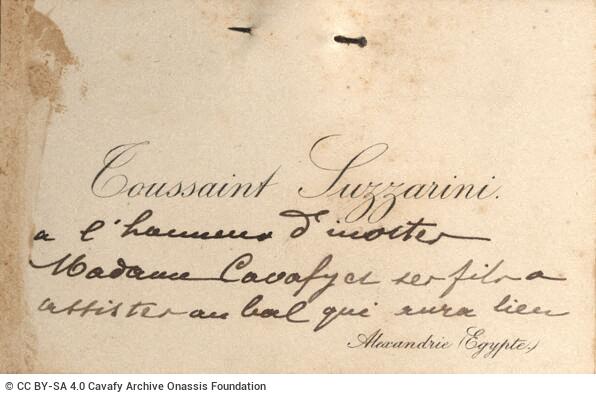 Toussaint Suzzarini.
a l'honneur d'inviter
Madame Cavafy et ses fils a
assister au bal qui aura lieu
Alexandrie (Egypte.)
© CC BY-SA 4.0 Cavafy Archive Onassis Foundation